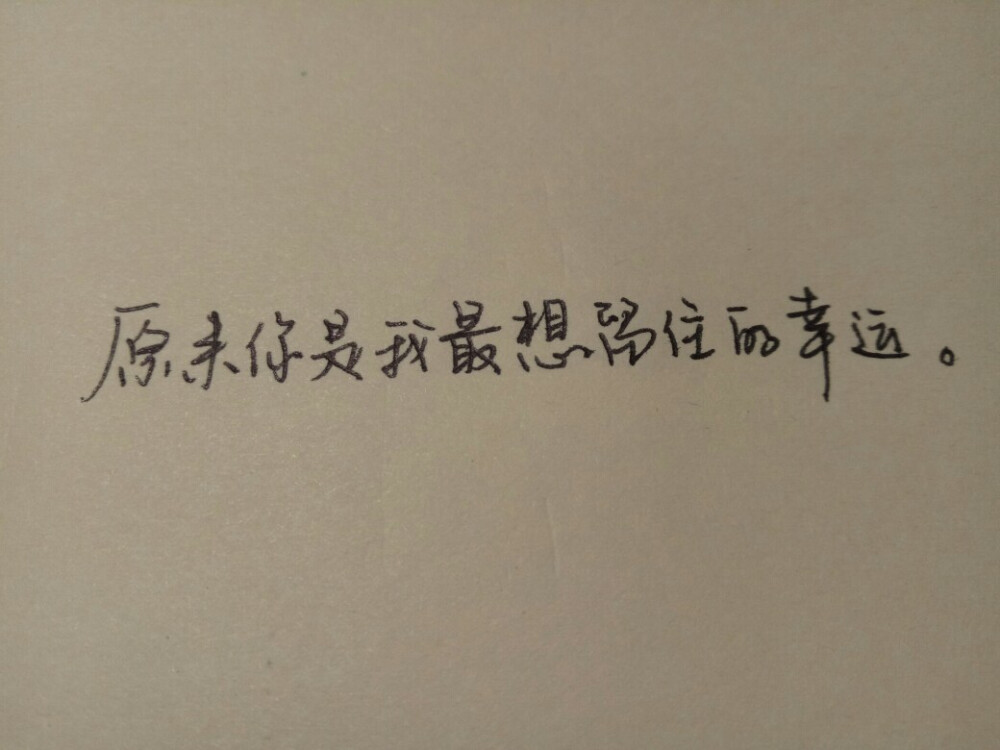 原来你是我最想留住的幸运。